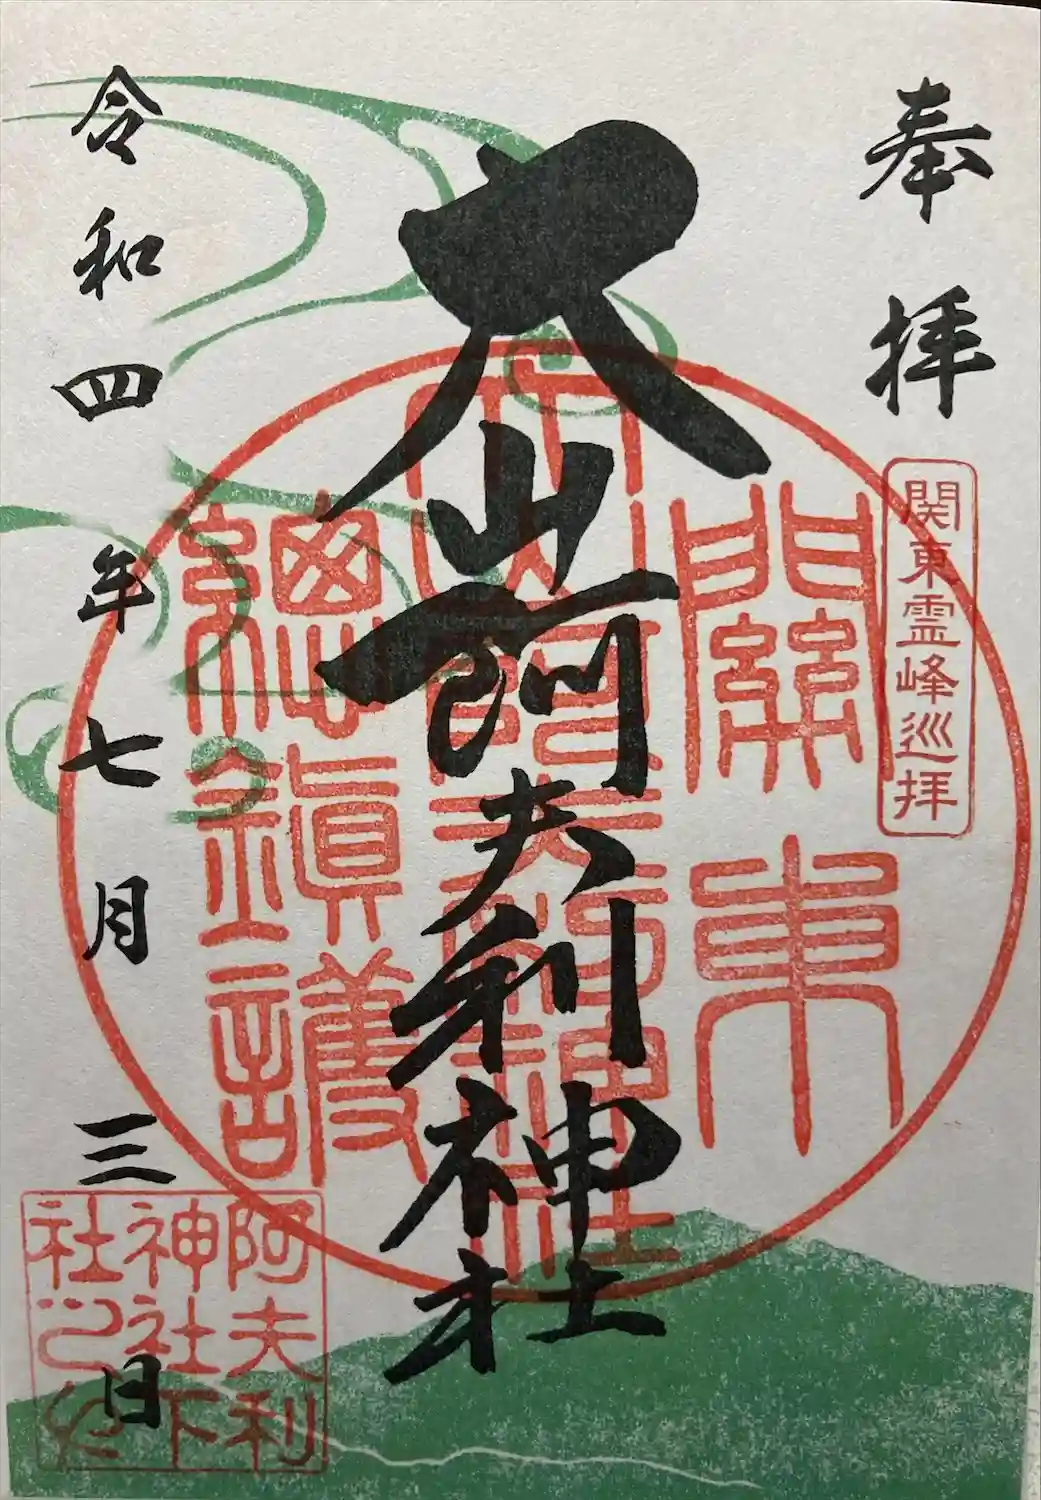 奉拝
関東霊峰巡拝
大山阿夫利神社
令和四年七月三日
關東
大山阿夫利神社
總鎮護
阿夫利
神社下
社之印